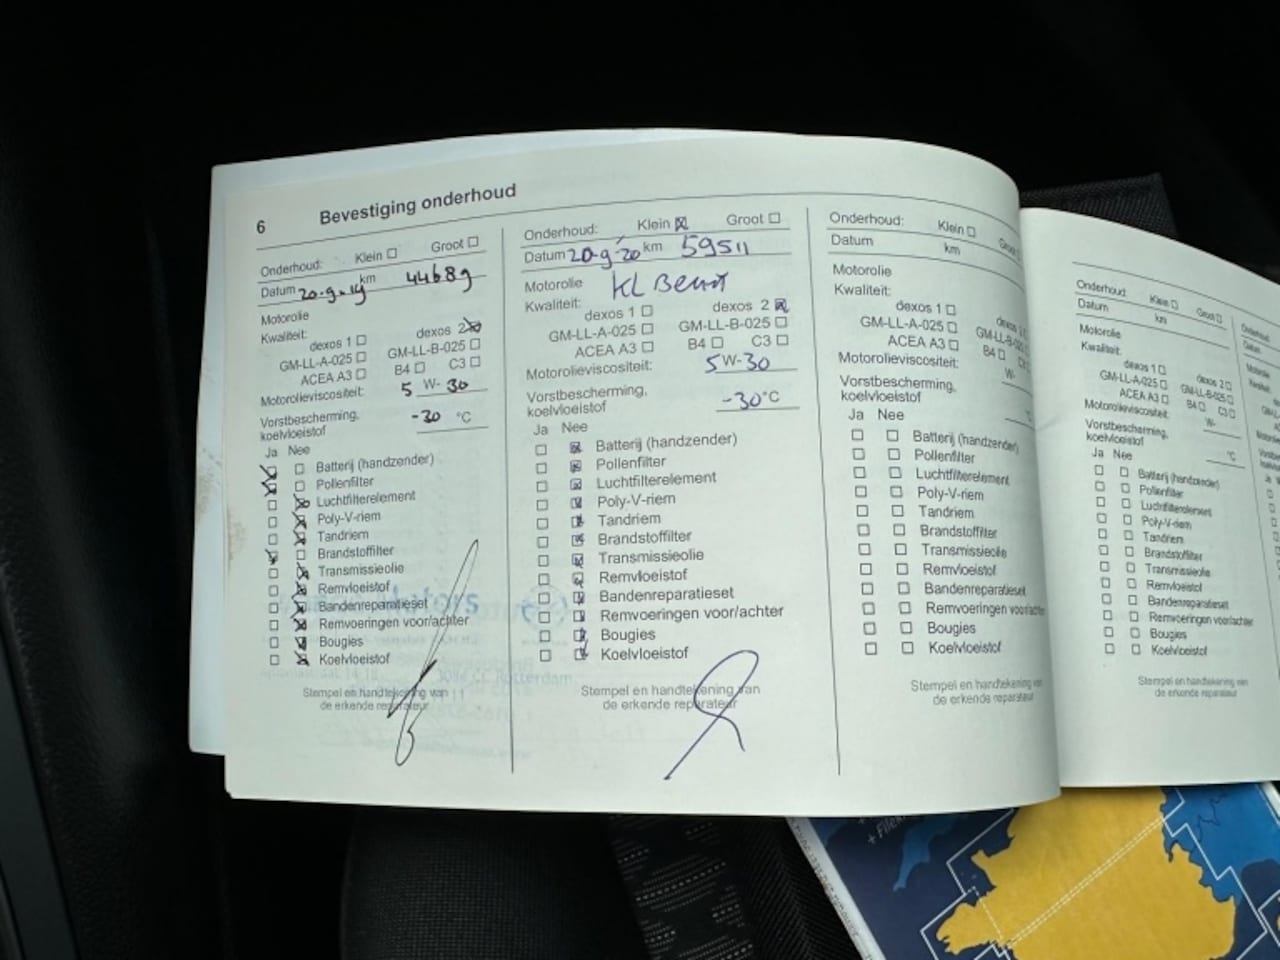 6 Bevestiging onderhoud
Onderhoud: Klein Groot
Datum 20-9-19 km 44689
Motorolie
Kwaliteit:
dexos 1 dexos 2
GM-LL-A-025 GM-LL-B-025
ACEA A3 B4 C3
Motorolieviscositeit: 5 W- 30
Vorstbescherming,
koelvloeistof -30 °C
Ja Nee
Batterij (handzender)
Pollenfilter
Luchtfilterelement
Poly-V-riem
Tandriem
Brandstoffilter
Transmissieolie
Remvloeistof
Bandenreparatieset
Remvoeringen voor/achter
Bougies
Koelvloeistof
Stempel en handtekening van
de erkende reparateur
Onderhoud: Klein Groot
Datum 20-9-'20 km 59511
Motorolie KL Beurt
Kwaliteit:
dexos 1 dexos 2
GM-LL-A-025 GM-LL-B-025
ACEA A3 B4 C3
Motorolieviscositeit: 5W-30
Vorstbescherming,
koelvloeistof -30°C
Ja Nee
Batterij (handzender)
Pollenfilter
Luchtfilterelement
Poly-V-riem
Tandriem
Brandstoffilter
Transmissieolie
Remvloeistof
Bandenreparatieset
Remvoeringen voor/achter
Bougies
Koelvloeistof
Stempel en handtekening van
de erkende reparateur
Onderhoud: Klein
Datum km
Motorolie
Kwaliteit:
dexos 1
GM-LL-A-025
ACEA A3 B4
Motorolieviscositeit: W-
Vorstbescherming,
koelvloeistof
Ja Nee
Batterij (handzender)
Pollenfilter
Luchtfilterelement
Poly-V-riem
Tandriem
Brandstoffilter
Transmissieolie
Remvloeistof
Bandenreparatieset
Remvoeringen voor/achter
Bougies
Koelvloeistof
Stempel en handtekening van
de erkende reparateur
Onderhoud: Klein Groot
Datum km
Motorolie
Kwaliteit:
dexos 1 dexos 2
GM-LL-A-025 GM-LL-B-025
ACEA A3 B4 C3
Motorolieviscositeit: W-
Vorstbescherming,
koelvloeistof °C
Ja Nee
Batterij (handzender)
Pollenfilter
Luchtfilterelement
Poly-V-riem
Tandriem
Brandstoffilter
Transmissieolie
Remvloeistof
Bandenreparatieset
Remvoeringen voor/achter
Bougies
Koelvloeistof
Stempel en handtekening van
de erkende reparateur